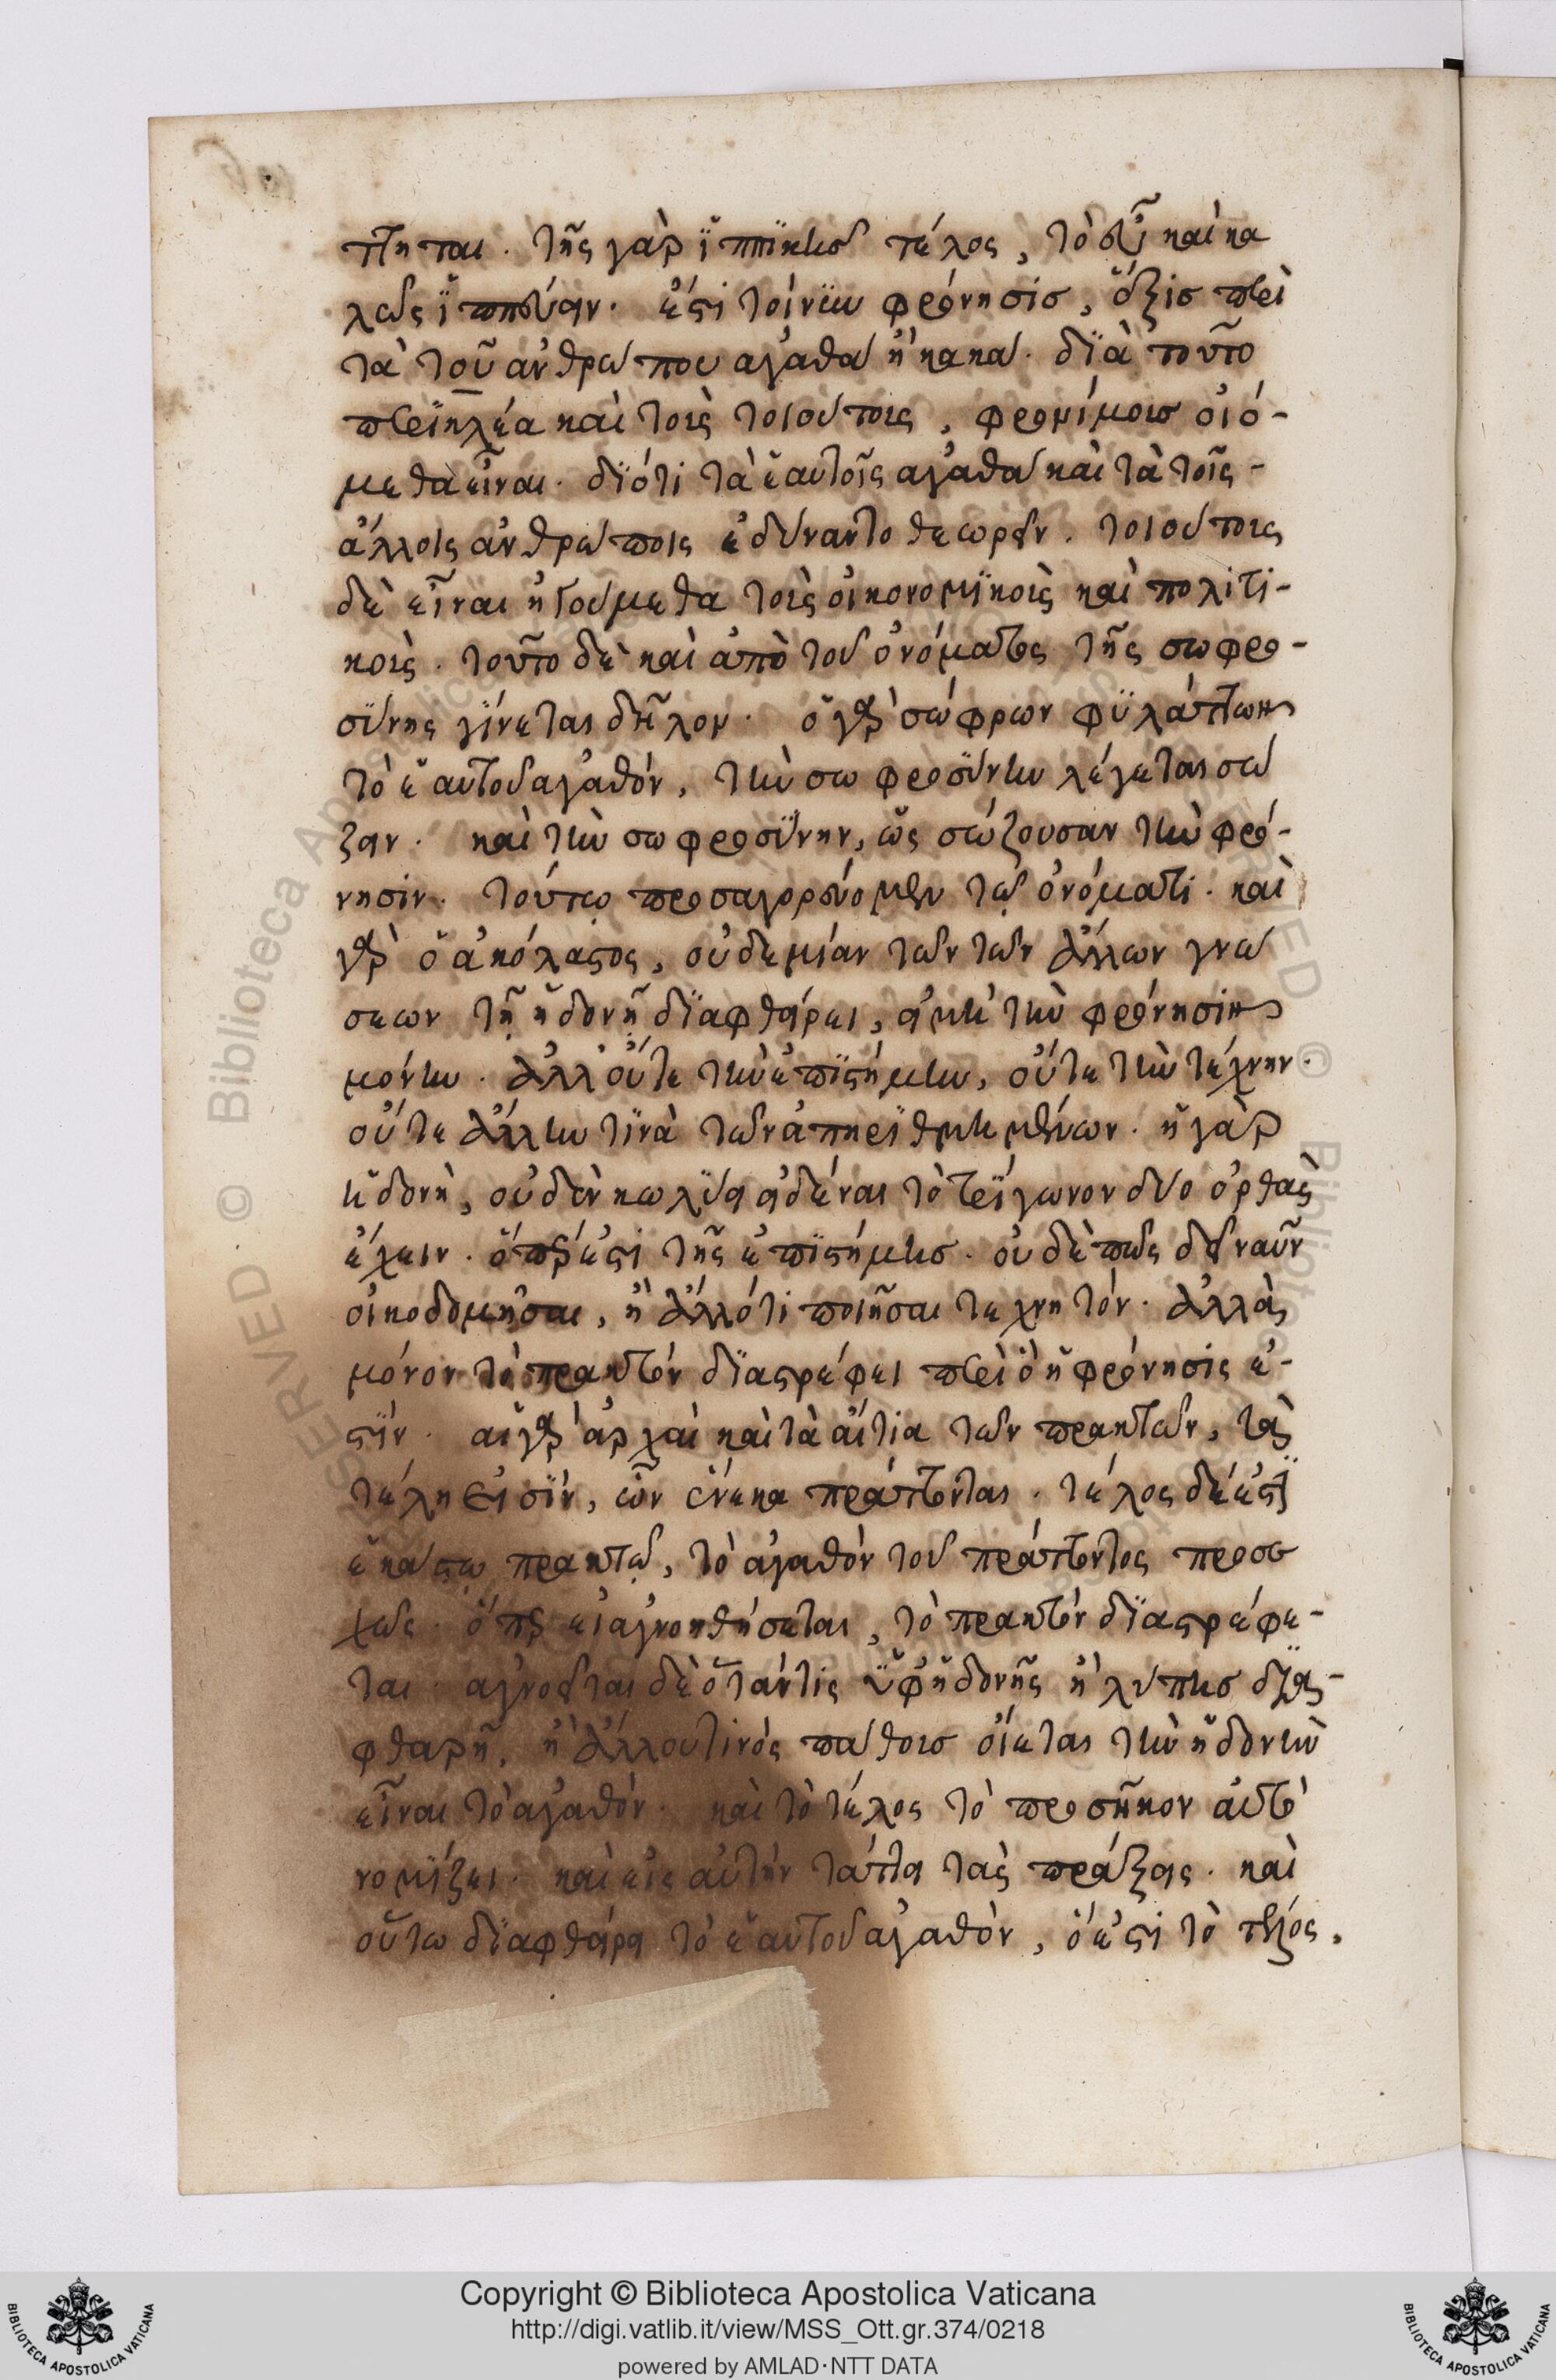 πτηται. τῆς γὰρ ἱππικῆσ τέλος, τὸ εὖ καὶ κα
λῶς ἱππεύειν. ἔστι τοίνυν φρόνησισ, ἕξισ περὶ
τὰ τοῦ ἀνθρώπου ἀγαθὰ ἢ κακά. διὰ τοῦτο
περικλέα καὶ τοὺς τοιούτους, φρονίμουσ οἰό-
μεθα εἶναι. διότι τὰ ἑαυτοῖς ἀγαθὰ καὶ τὰ τοῖς-
ἄλλοις ἀνθρώποις ἐδύναντο θεωρεῖν. τοιούτους
δὲ εἶναι ἡγούμεθα τοὺς οἰκονομικοὺς καὶ πολιτι-
κούς. τοῦτο δὲ καὶ ἀπὸ τοῦ ὀνόματος τῆς σωφρο-
σύνης γίνεται δῆλον. ὁ γὰρ σώφρων φυλάττων
τὸ ἑαυτοῦ ἀγαθόν, τὴν σωφροσύνην λέγεται σώ
ζειν. καὶ τὴν σωφροσύνην, ὡς σώζουσαν τὴν φρό-
νησιν. τούτῳ προσαγορεύομεν τῷ ὀνόματι. καὶ
γὰρ ὁ ἀκόλαστος, οὐδεμίαν τῶν τῶν ἄλλων γνώ
σεων τῇ ἡδονῇ διαφθείρει, εἰ μὴ τὴν φρόνησιν
μόνην. ἀλλ' οὔτε τὴν ἐπιστήμην, οὔτε τὴν τέχνην.
οὔτε ἄλλην τινὰ τῶν ἀπηριθμημένων. ἡ γὰρ
ἡδονή, οὐδὲν κωλύει εἰδέναι τὸ τρίγωνον δύο ὀρθὰς
ἔχειν. ὅπερ ἐστὶ τῆς ἐπιστήμησ. οὐδέ πως δεῖ ναῦν
οἰκοδομῆσαι, ἢ ἄλλό τι ποιῆσαι τεχνητόν. ἀλλὰ
μόνον τὸ πρακτὸν διαστρέφει περὶ ὃ ἡ φρόνησις ἐ-
στίν. αἱ γὰρ ἀρχαὶ καὶ τὰ αἴτια τῶν πρακτῶν, τὰ
τέλη εἰσίν, ὧν ἕνεκα πράττονται. τέλος δέ ἐστι
ἑκάστῳ πρακτῷ, τὸ ἀγαθὸν τοῦ πράττοντος προσε
χῶς. ὅπερ εἰ ἀγνοηθήσεται, τὸ πρακτὸν διαστρέφε-
ται. ἀγνοεῖται δὲ ὅταν τις ὑφ' ἡδονῆς ἢ λύπησ δια-
φθαρῇ. ἢ ἄλλου τινὸς πάθουσ οἴεται τὴν ἡδονὴν
εἶναι τὸ ἀγαθόν. καὶ τὸ τέλος τὸ προσῆκον αὐτὸ
νομίζει. καὶ εἰς αὐτὴν τάττει τὰς πράξεις. καὶ
οὕτω διαφθείρει τὸ ἑαυτοῦ ἀγαθόν, ὅ ἐστι τὸ τέλος.
Copyright © Biblioteca Apostolica Vaticana
http://digi.vatlib.it/view/MSS_Ott.gr.374/0218
powered by AMLAD·NTT DATA
BIBLIOTECA APOSTOLICA VATICANA
BIBLIOTECA APOSTOLICA VATICANA